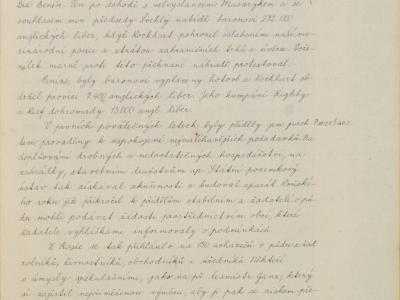 Dra Beneše. Ten po dohodě s velvyslancem Masarykem a se
souhlasem min. předsedy Švehly nabídl baronovi 292.000
anglických liber, když Lockhart pohrozil oslabením naší me-
zinárodní posice a ztrátou zahraničních trhů a úvěrů.
marně proti této přehnané náhradě protestoval.
Peníze, byly baronovi vyplaceny hotově a Lockhart ob-
držel provisi 2.400 anglických liber. Jeho kumpáni Righby
a Keef dohromady 13.000 angl. liber.
V prvních poválečných letech byly příděly jen
prováděny k uspokojení nejnaléhavějších požadavků na
doplňování drobných a nedostatečných hospodářství, na
zahrádky, stavebním družstvům ap. Státní pozemkový
ústav tak získával zkušenosti a budoval aparát.
ho roku již přikročil k přídělům stabilním a žadatelé o pů-
du mohli podávat žádosti prostřednictvím obcí, které
žadatele vyhláškami informovaly o podmínkách.
Z Rosic se tak přihlásilo na 150 uchazečů o půdu z řad
rolníků, živnostníků, obchodníků i úředníků. Někteří
s úmysly spekulačními, jako na př. lesmistr Ganz, který
si zajistil nepřiměřenou výměru, aby ji pak se ziskem pře-